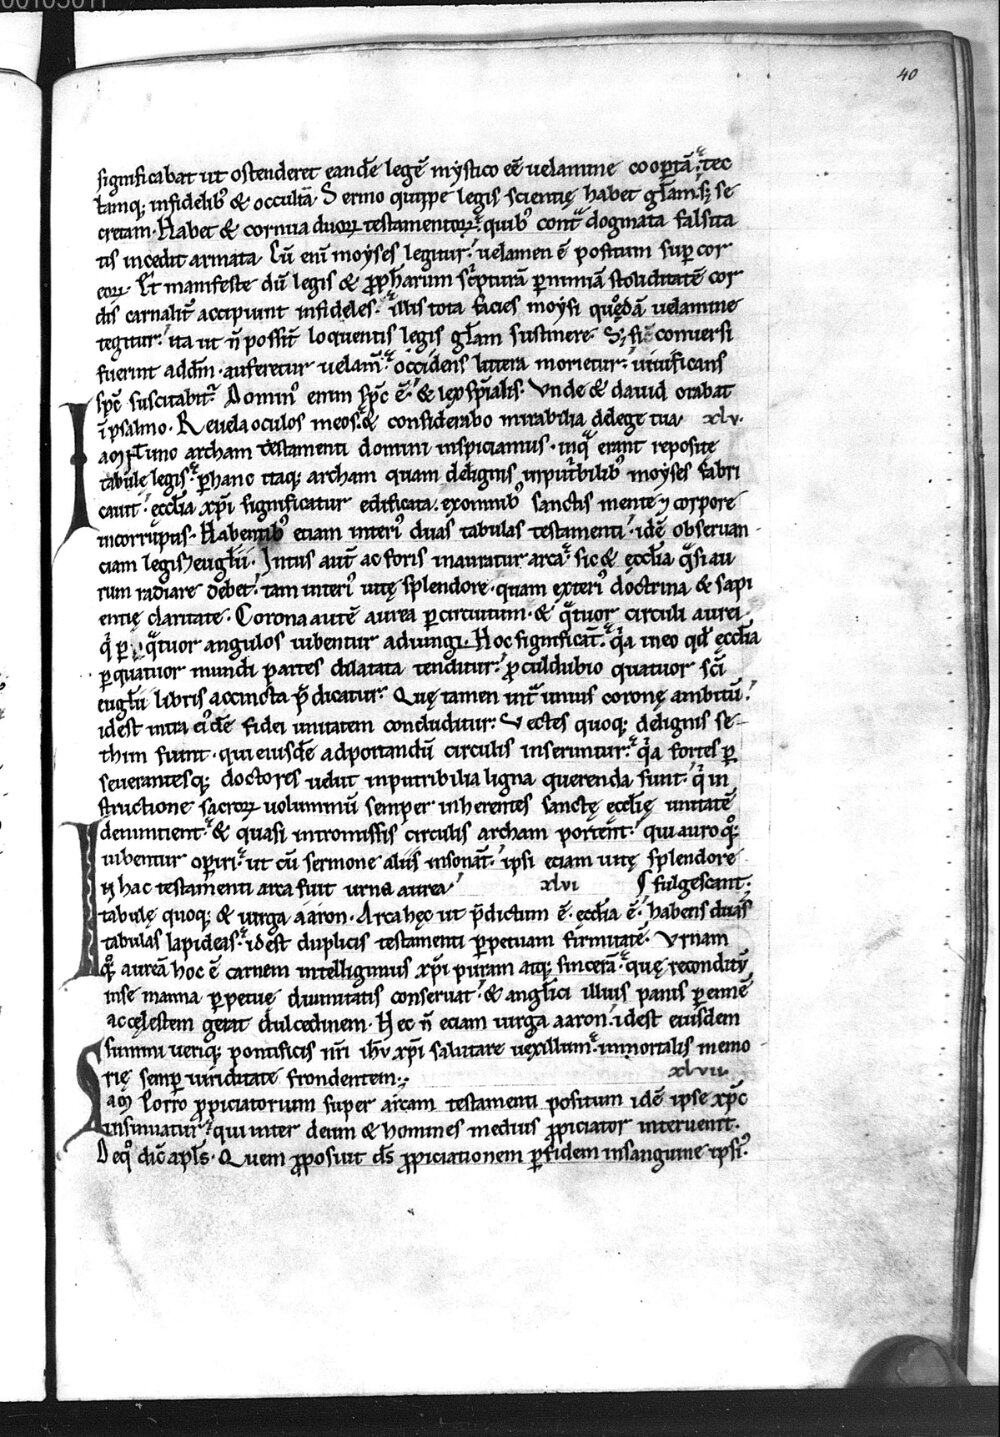 40
significabat ut ostenderet eandē legē mystico eē uelamine coopertā. tec
tamq; infidelib; & occultā. Sermo quippe legis scientię habet glam. s; se
cretam. Habet & cornua duorum testamentorum quib; contra dogmata falsita
tis incedit armata. Cū enī moyses legitur. uelamen ē positum sup cor
eorum. Et manifeste dū legis & prophetarum scripturā p nimiā stoliditatē cor
dis carnalit accipiunt infideles. illis tota facies moysi quodā uelamine
tegitur. ita ut n possit loquentis legis glam sustinere. S; si conuersi
fuerint ad dm. auferetur uelam. occidens littera morietur. uiuificans
spc suscitabit. Dominus enim spc ē. & lex spialis. Unde & dauid orabat
ī psalmo. Reuela oculos meos & considerabo mirabilia de lege tua. xlv.
Iam p timo archam testamenti domini inspiciamus. in qua erant reposite
tabule legis. p hanc itaq; archam quam de lignis inputribilib; moyses fabri
cauit. ecclia xpi significatur edificata. ex omnib; sanctis mente & corpore
incorruptis. Habentib; etiam interius duas tabulas testamenti. idē obseruan
ciam legis & euglii. Intus aut ac foris inauratur arca. sic & ecclia quasi au
rum radiare debet. tam interius uite splendore. quam exterius doctrina & sapi
entię claritate. Corona autē aurea p circuitum. & quatuor circuli aurei.
qui p quatuor angulos iubentur adiungi. Hoc significat. quia in eo qd ecclia
p quatuor mundi partes dilatata tenditur. procul dubio quatuor sci
euglii libris accincta predicatur. Que tamen intra unius corone ambitū.
idest intra eiusdē fidei unitatem concluditur. Vectes quoq; de lignis se-
thim fiunt. qui eiusdē ad portandū circulis inseruntur. quia fortes p
seuerantesq; doctores uelut inputribilia ligna querenda sunt. qui in
structione sacrorum uoluminū semper inherentes sancte ecclie unitatē
denuntient. & quasi intromissis circulis archam portent. qui auro quoq;
iubentur operiri. ut cū sermone aliis insonat. ipsi etiam uite splendore
In hac testamenti arca fuit urna aurea xlvi fulgescant.
tabulę quoq; & uirga aaron. Arca hęc ut predictum ē. ecclia ē. habens duas
tabulas lapideas. idest duplicis testamenti perpetuam firmitatē. Vrnam
quoq; aureā hoc ē carnem intelligimus xpi puram atq; sincerā. quę reconditū
in se manna perpetuę diuinitatis conseruat. & anglici illius panis perenne
ac celestem gerat dulcedinem. Nec n etiam uirga aaron. idest eiusdem
summi ueriq; pontificis nri ihu xpi salutare uexillum. immortalis memo
rię semp uiriditate frondentem. xlvii.
Iam Porro propiciatorium super arcam testamenti positum idē ipse xpc
insinuatur. qui inter deum & homines medius propiciator interuenit.
De quo dic apls. Quem proposuit ds propiciationem per fidem in sanguine ipsius.